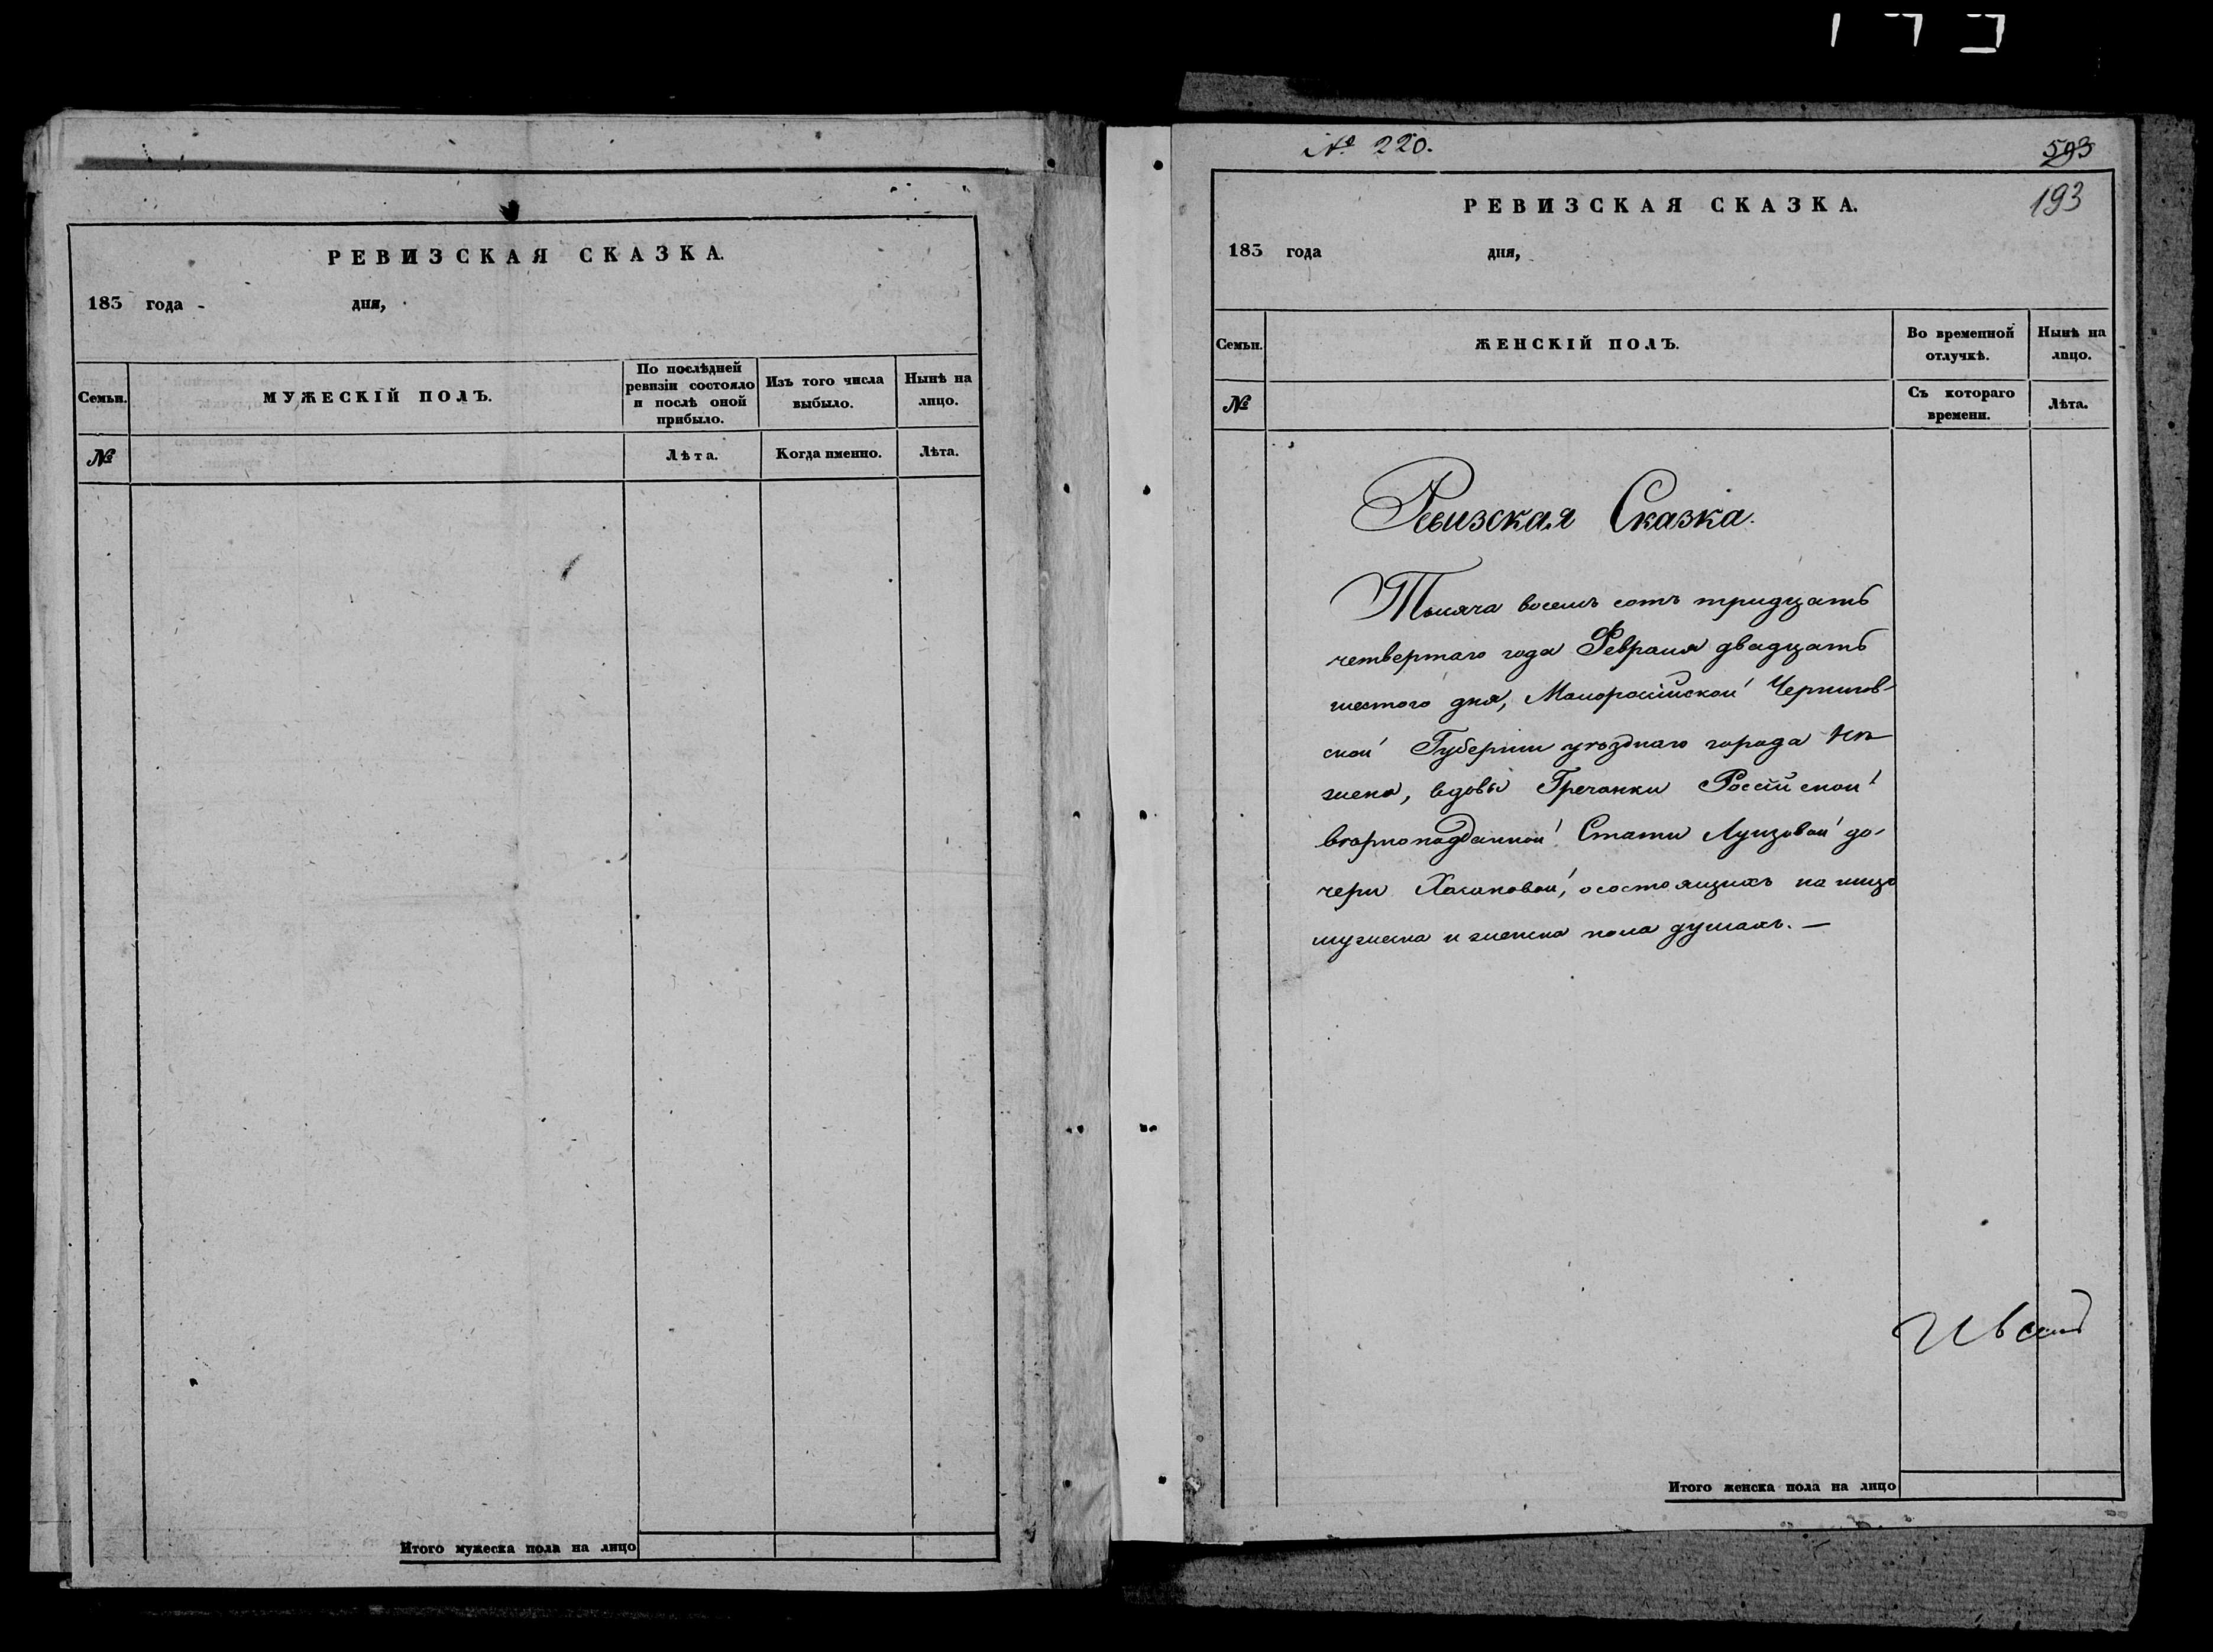 РЕВИЗСКАЯ СКАЗКА.
183 года дня,
Семьи.
МУЖЕСКІЙ ПОЛЪ.
По послѣдней
ревизіи состояло
и послѣ оной
прибыло.
Изъ того числа
выбыло.
Нынѣ на
лицо.
№
Лѣта.
Когда именно.
Лѣта.
Итого мужеска пола на лицо
№ 220.
593
193
РЕВИЗСКАЯ СКАЗКА.
183 года дня,
Семьи.
ЖЕНСКІЙ ПОЛЪ.
Во временной
отлучкѣ.
Нынѣ на
лицо.
№
Съ котораго
времени.
Лѣта.
Ревизская Сказка.
Тысяча восемь сотъ тридцать
четвертаго года Февраля двадцать
шестого дня, Малороссійской Чернигов-
ской Губерніи уѣзднаго города Нѣ
жена, вдовы Гречанки Россійской
вѣрноподданной Стати Луизовой до-
чери, о состоящихъ на лицо
мужеска и женска пола душахъ. —
Итого женска пола на лицо